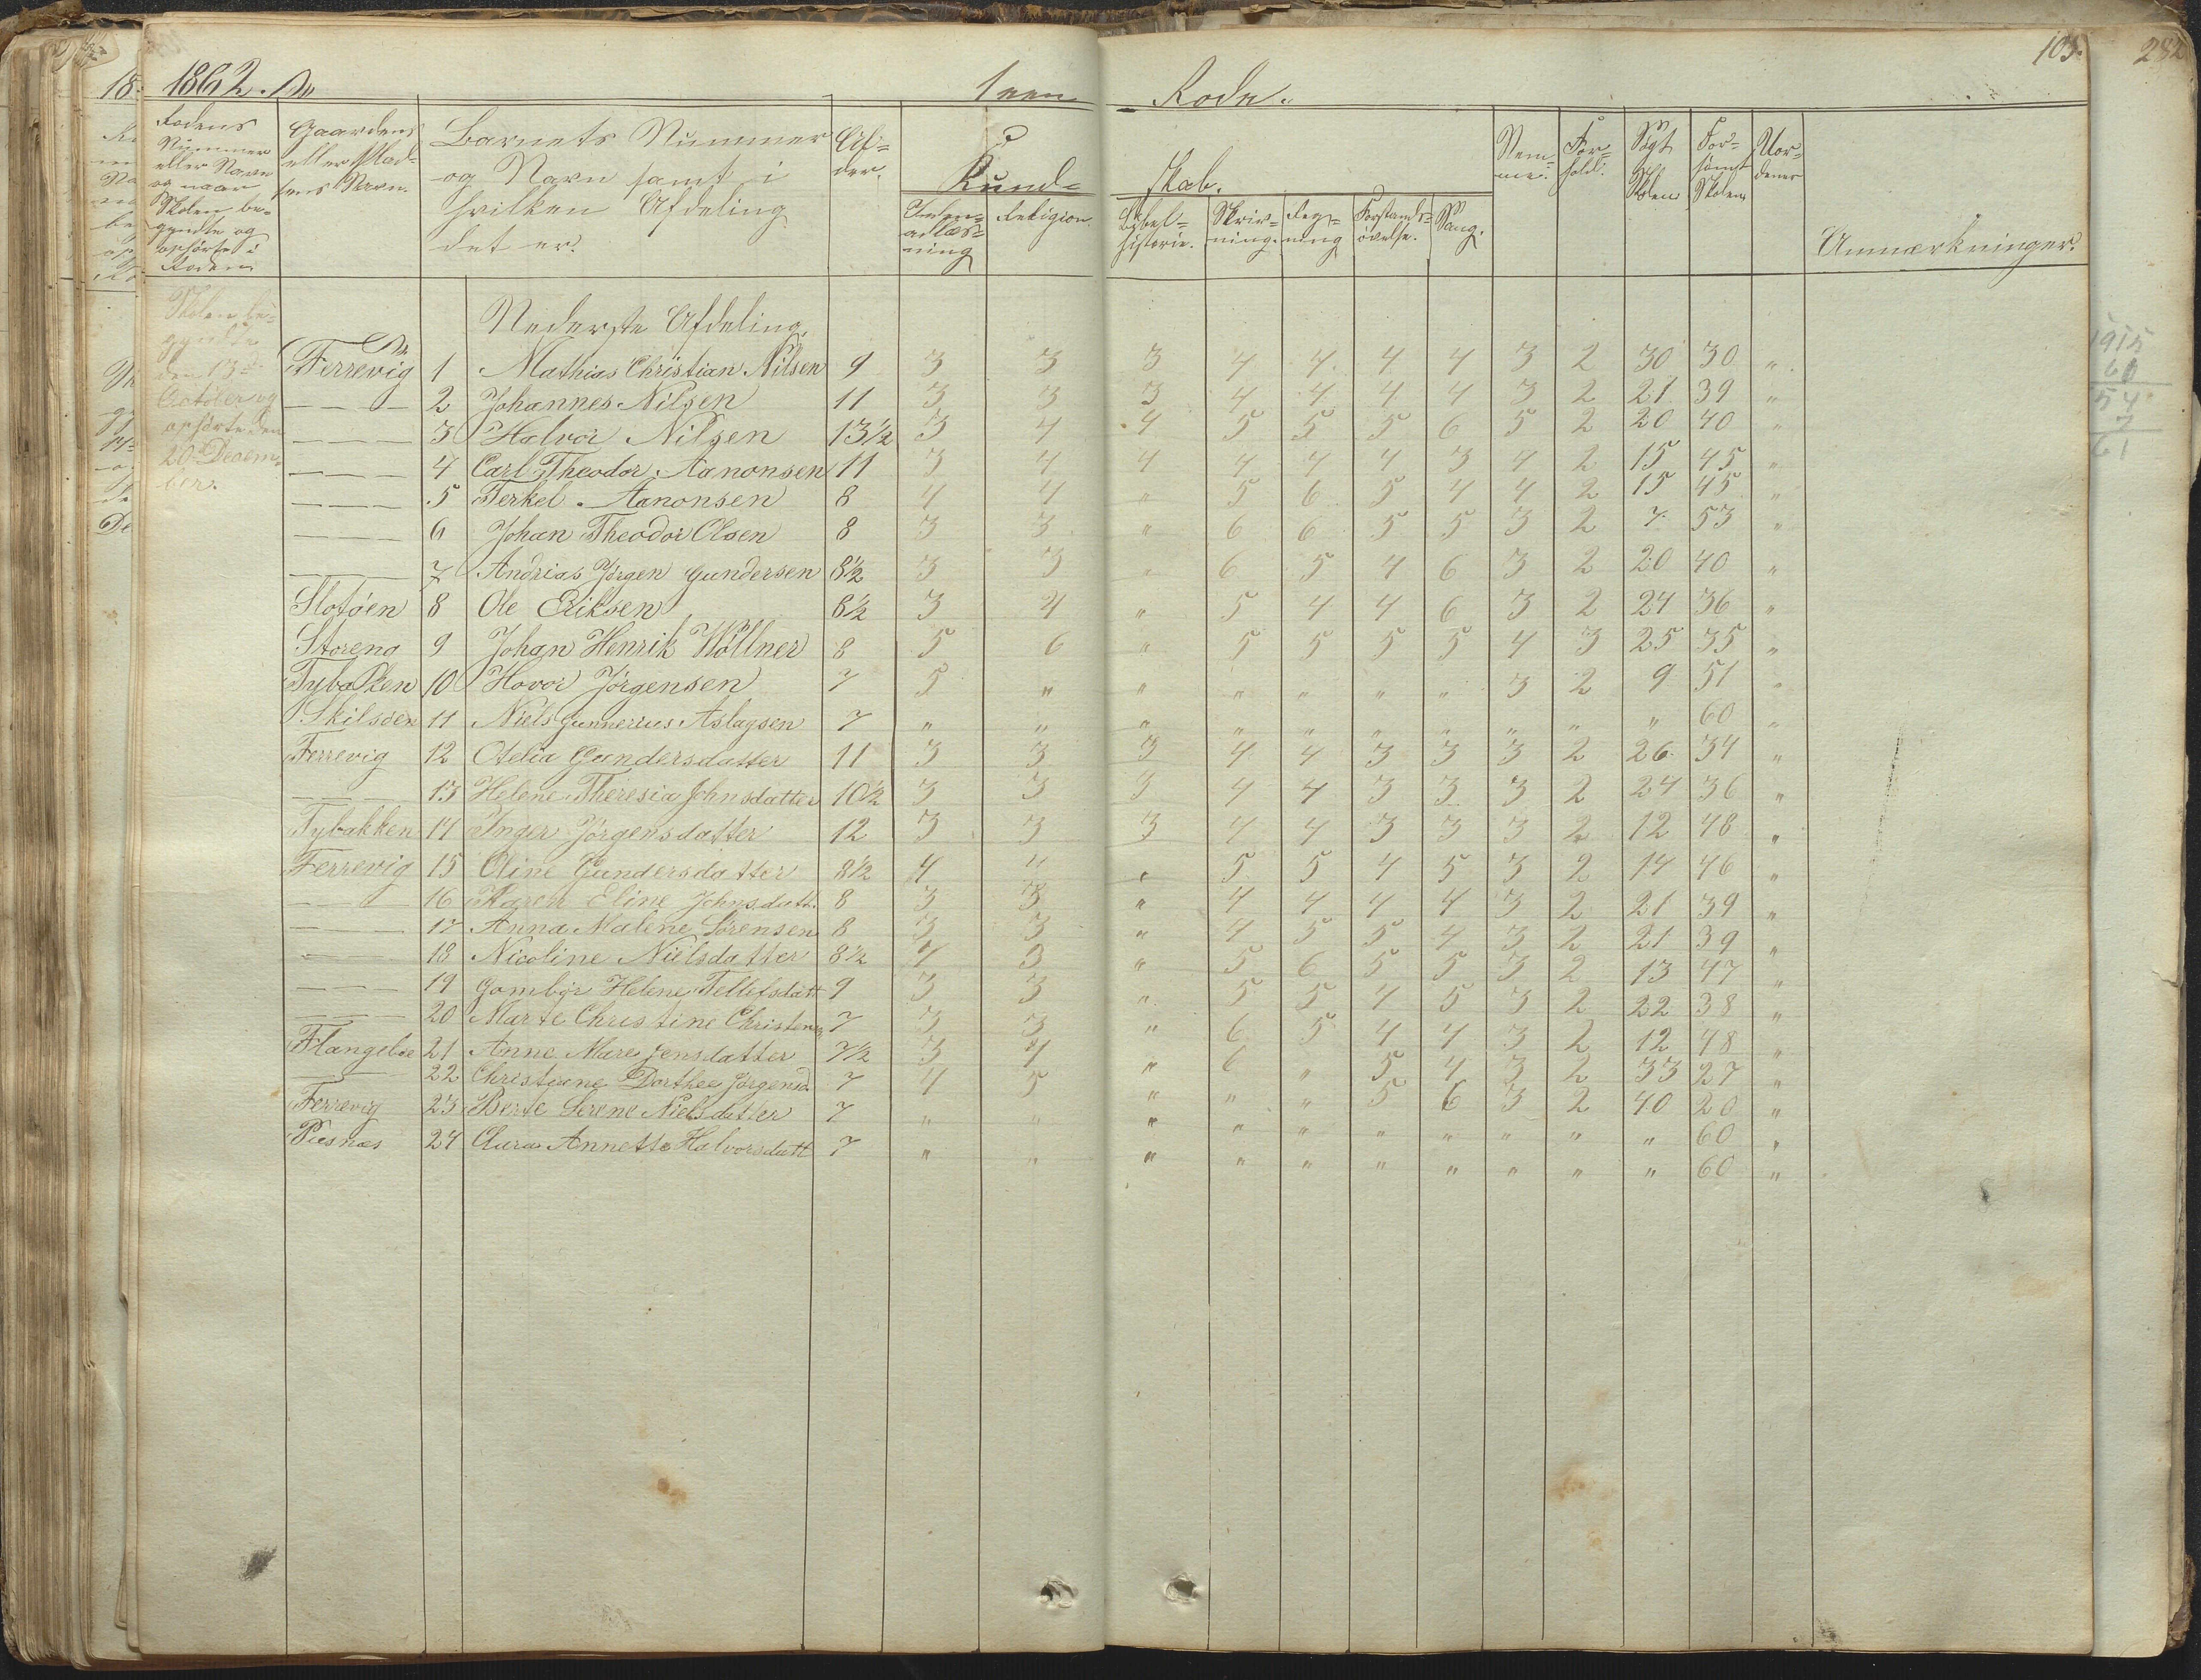 1862.
1sten Rode.
103.
282
Rodens Nummer eller Navn og naar Skolen begyndte og ophørte i Roden
Gaardens eller Pladsens Navn.
Barnets Nummer og Navn samt i hvilken Afdeling det er.
Alder.
Kundskab.
Indenadlæsning
Religion.
Bibelhistorie.
Skrivning.
Regning
Forstandsøvelse.
Sang.
Nemme.
Forhold.
Søgt Skolen
Forsømt Skolen
Uordener
Anmærkninger.
Skolen begyndte den 13de October og ophørte den 20 December.
Nederste Afdeling.
Færrevig 1 Mathias Christian Nilsen 9 3 3 3 4 4 4 4 3 2 30 30 "
— — — 2 Johannes Nilsen 11 3 3 3 4 4 4 4 3 2 21 39 "
— — — 3 Halvor Nilsen 13½ 3 4 4 5 5 5 6 5 2 20 40 "
— — — 4 Carl Theodor Aanonsen 11 3 4 4 4 4 4 3 4 2 15 45 "
— — — 5 Terkel Aanonsen 8 4 4 " 5 6 5 4 4 2 15 45 "
— — — 6 Johan Theodor Olsen 8 3 3 " 6 6 5 5 3 2 7 53 "
— — — 7 Andrias Jørgen Gundersen 8½ 3 3 " 6 5 4 6 3 2 20 40 "
Slotøen 8 Ole Eriksen 8½ 3 4 " 5 4 4 6 3 2 24 36 "
Storeng 9 Johan Henrik Wöllner 8 5 6 " 5 5 5 5 4 3 25 35 "
Tybakken 10 Hovor Jørgensen 7 5 " " " " " " 3 2 9 51 "
Skilsøen 11 Niels Gunnerius Aslagsen 7 " " " " " " " " " " 60 "
Færrevig 12 Otelia Gundersdatter 11 3 3 3 4 4 3 3 3 2 26 34 "
— — 13 Helene Theresia Johnsdatter 10½ 3 3 3 4 4 3 3 3 2 24 36 "
Tybakken 14 Inger Jørgensdatter 12 3 3 3 4 4 3 3 3 2 12 48 "
Færrevig 15 Oline Gundersdatter 8½ 4 4 " 5 5 4 5 3 2 14 46 "
— — 16 Karen Eline Johnsdatt. 8 3 3 " 4 4 4 4 3 2 21 39 "
— — 17 Anna Malene Sørensen 8 3 3 " 4 5 5 4 3 2 21 39 "
— — 18 Nicoline Nielsdatter 8½ 4 3 " 5 6 5 5 3 2 13 47 "
— — — 19 Gombjr Helene Tellefsdatt 9 3 3 " 5 5 4 5 3 2 22 38 "
— — 20 Marte Christine Christens 7 3 3 " 6 5 4 4 3 2 12 48 "
Flangeboe 21 Anne Mare Jensdatter 7½ 3 4 " 6 " 5 4 3 2 33 27 "
— 22 Christiane Dorthee Jørgensd. 7 4 5 " " " 5 6 3 2 40 20 "
Færrevig 23 Berte Serene Nielsdatter 7 " " " " " " " " " " 60 "
Pusnæs 24 Clara Annette Halvorsdatt 7 " " " " " " " " " " 60 "